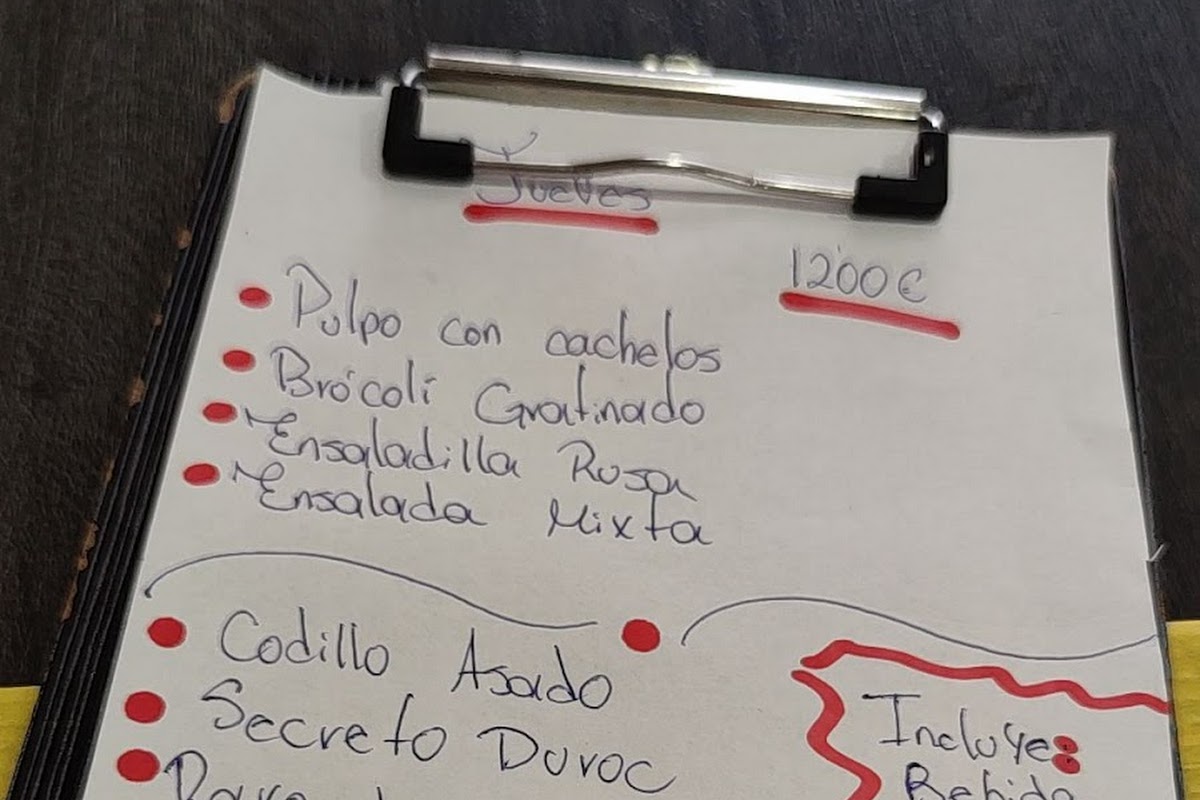 Jueves
12'00€
Pulpo con cachelos
Brócoli Gratinado
Ensaladilla Rusa
Ensalada Mixta
Codillo Asado
Secreto Duroc
Incluye:
Bebida